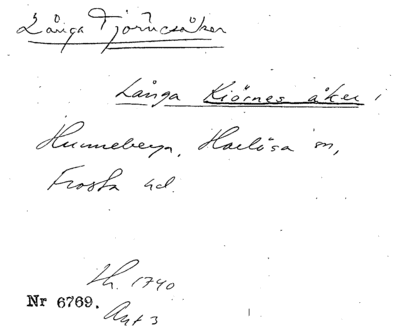 Långa Tjörnesåker
Långa Kiörnes åker i
Hunneberga, Harlösa sn,
Frosta hd.
Lh. 1740
Nr 6769.
Akt 3